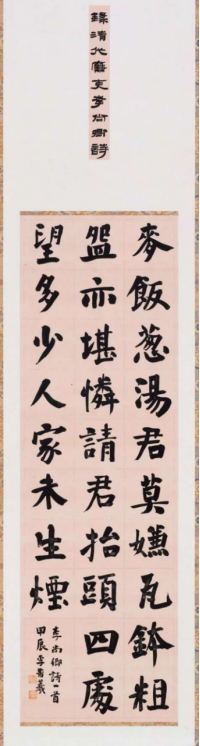 錄清代廉吏李尚卿詩
麥飯葱湯君莫嫌瓦鉢粗
盌亦堪憐請君抬頭四處
望多少人家未生煙
李尚卿詩一首
甲辰